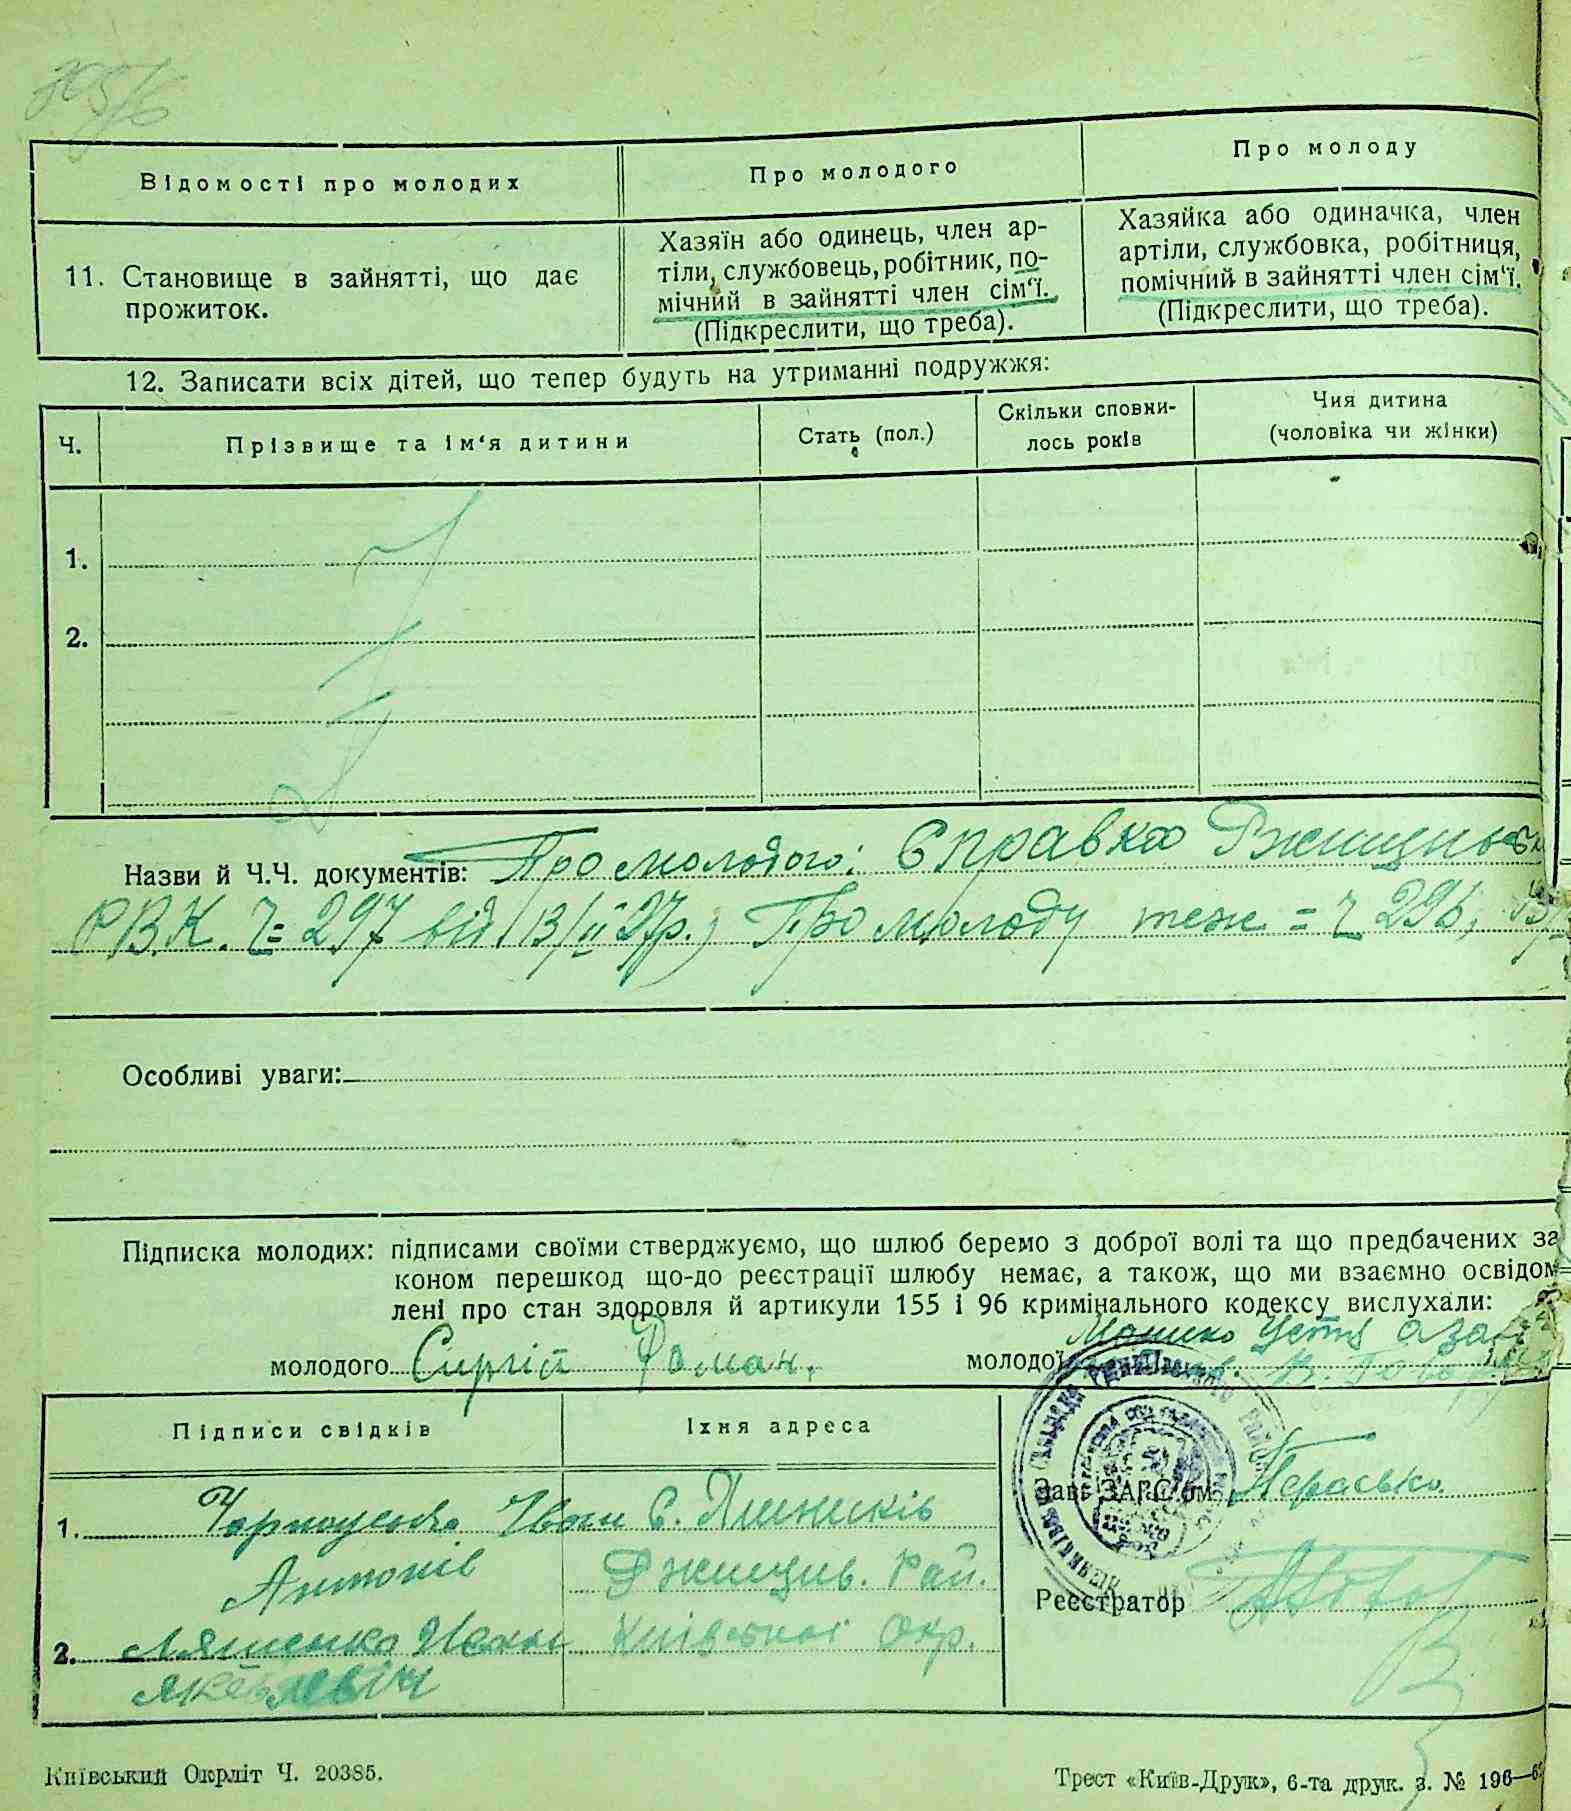 Відомості про молодих
Про молодого
Про молоду
11. Становище в зайнятті, що дає
прожиток.
Хазяїн або одинець, член ар-
тіли, службовець, робітник, по-
мічний в зайнятті член сім'ї.
(Підкреслити, що треба).
Хазяйка або одиначка, член
артіли, службовка, робітниця,
помічний в зайнятті член сім'ї.
(Підкреслити, що треба).
12. Записати всіх дітей, що тепер будуть на утриманні подружжя:
Ч.
Прізвище та ім'я дитини
Стать (пол.)
Скільки сповни-
лось років
Чия дитина
(чоловіка чи жінки)
1.
2.
Назви й Ч.Ч. документів: Про молодого: Справка
РВК. Ч=297 від 13/II 27р.; Про молоду теж = Ч 296,
Особливі уваги:
Підписка молодих: підписами своїми стверджуємо, що шлюб беремо з доброї волі та що предбачених за
коном перешкод що-до реєстрації шлюбу немає, а також, що ми взаємно освідом
лені про стан здоровля й артикули 155 і 96 кримінального кодексу вислухали:
молодого Сиргій Роман.
молодої
Підписи свідків
Їхня адреса
1. Іван С. Пшеників
Антонів Ржищив. Рай.
2. Ляшенко Київської Окр.
Зав. ЗАГС'ом
Реєстратор
Київський Окрліт Ч. 20385.
Трест «Київ-Друк», 6-та друк. з. № 196—6